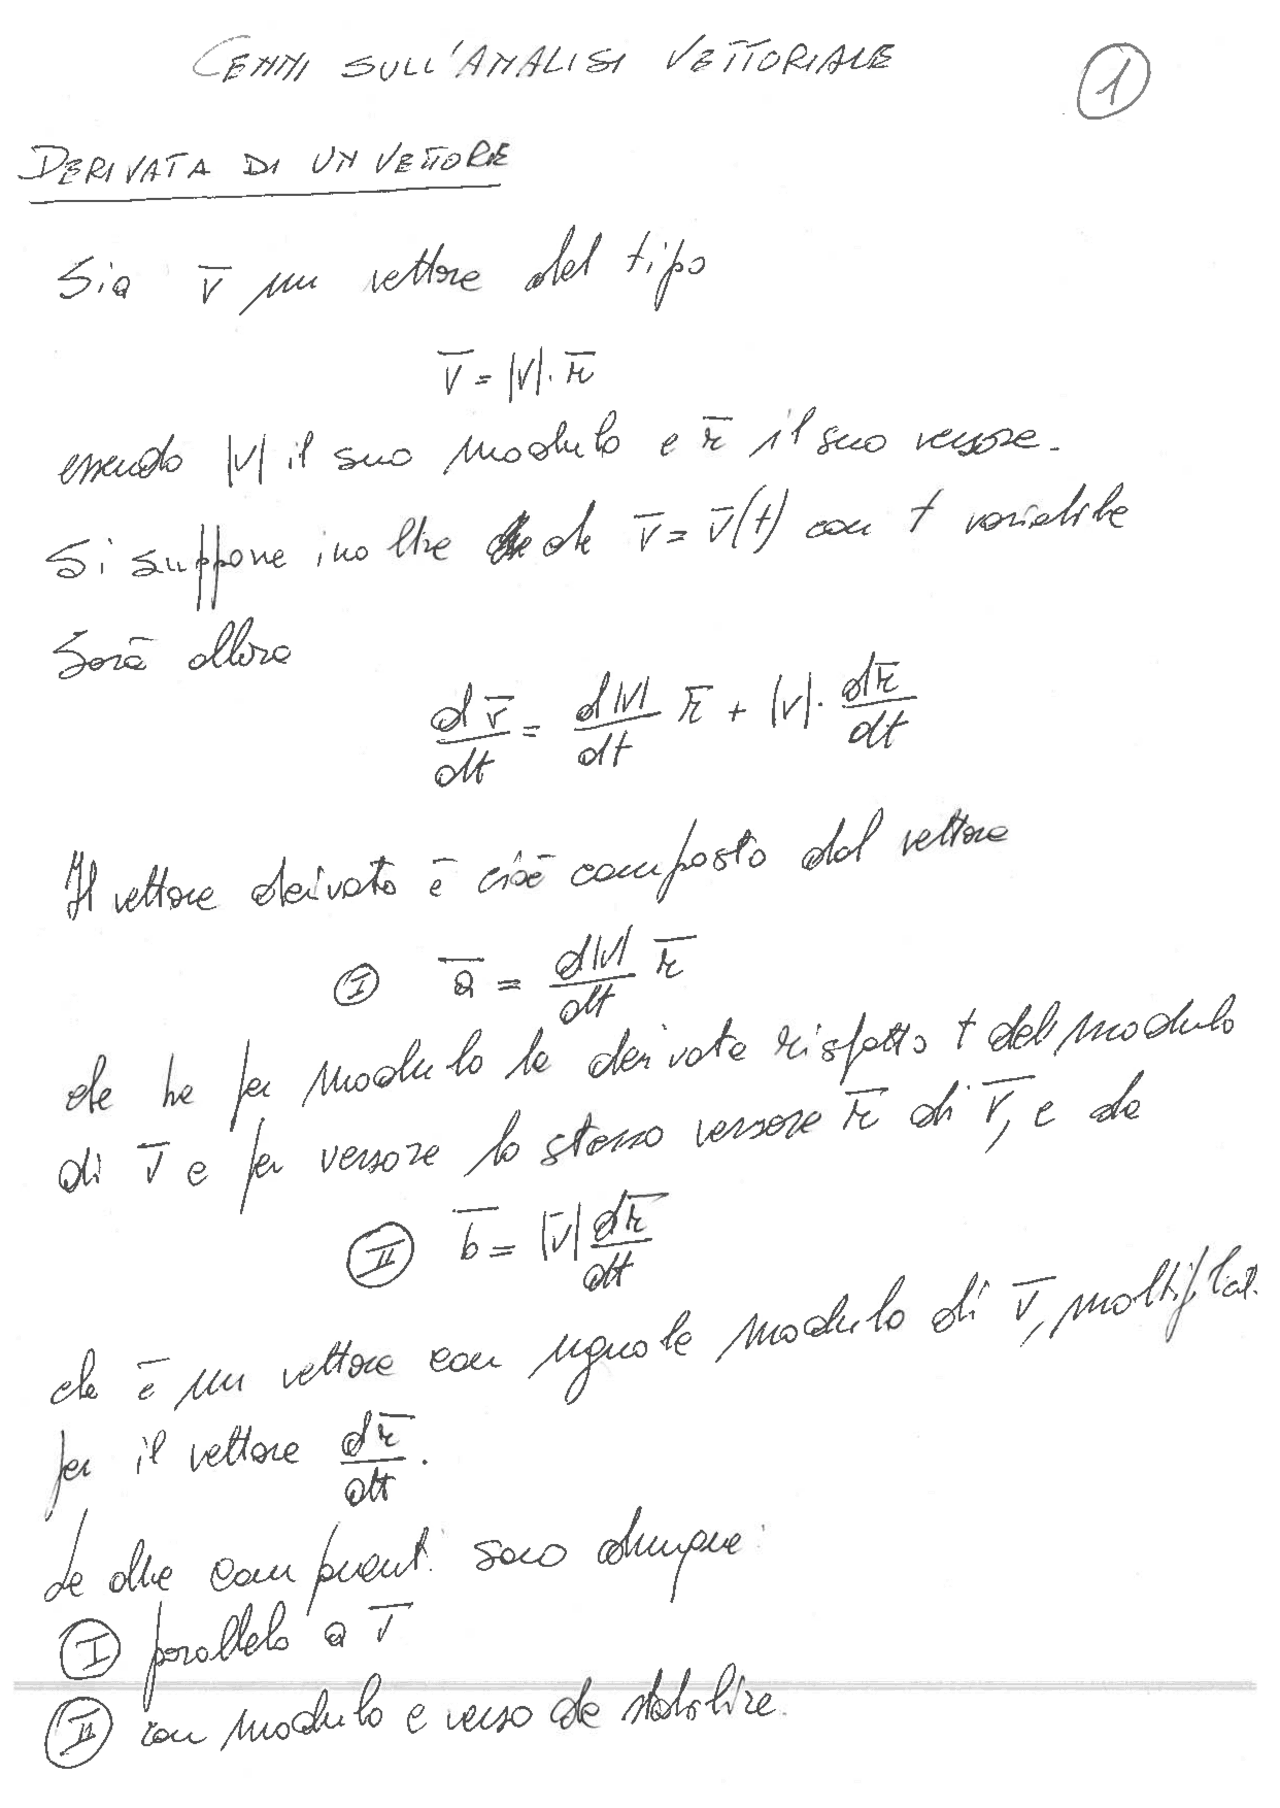 CENNI SULL'ANALISI VETTORIALE
1
DERIVATA DI UN VETTORE
Sia v̅ un vettore del tipo
v̅ = |v|· r̅
essendo |v| il suo modulo e r̅ il suo versore.
Si suppone inoltre che v̅ = v̅(t) con t variabile
Sarà allora
dv̅/dt = d|v|/dt r̅ + |v|· dr̅/dt
Il vettore derivato è cioè composto dal vettore
I a̅ = d|v|/dt r̅
che ha per modulo la derivata rispetto t del modulo
di v̅ e per versore lo stesso versore r̅ di v̅, e da
II b̅ = |v̅| dr̅/dt
che è un vettore con uguale modulo di v̅, moltiplicat.
per il vettore dr̅/dt.
Le due component. sono dunque:
I parallelo a v̅
II con modulo e verso da stabilire.